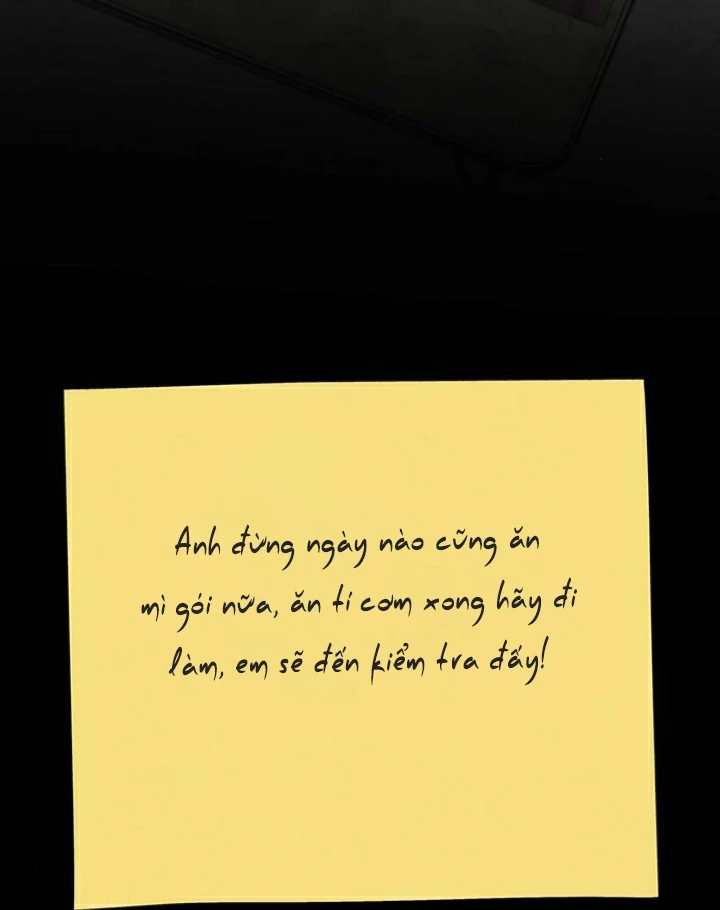 Anh đừng ngày nào cũng ăn
mì gói nữa, ăn tí cơm xong hãy đi
làm, em sẽ đến kiểm tra đấy!